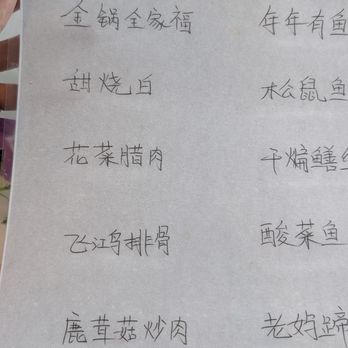 金锅全家福 年年有鱼
甜烧白 松鼠鱼
花菜腊肉 干煸鳝
飞鸿排骨 酸菜鱼
鹿茸菇炒肉 老妈蹄